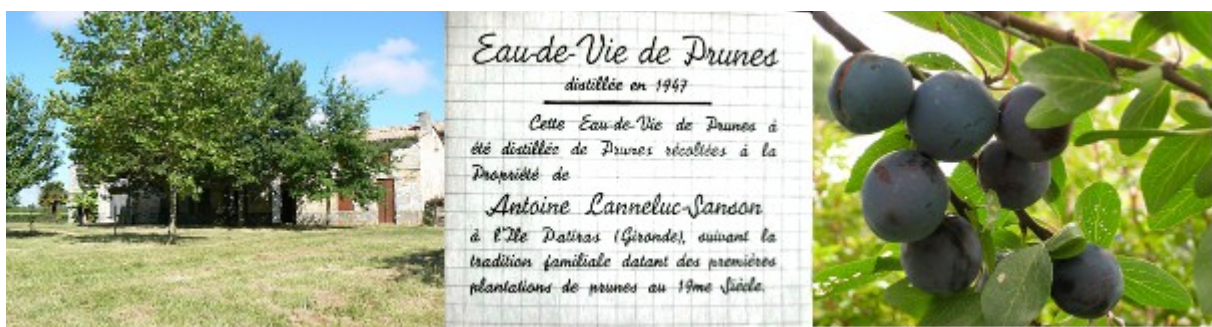 Eau-de-Vie de Prunes
distillée en 1947
Cette Eau-de-Vie de Prunes à
été distillée de Prunes récoltées à la
Propriété de
Antoine Lanneluc-Sanson
à l'Ile Patiras (Gironde), suivant la
tradition familiale datant des premières
plantations de prunes au 19me Siècle.